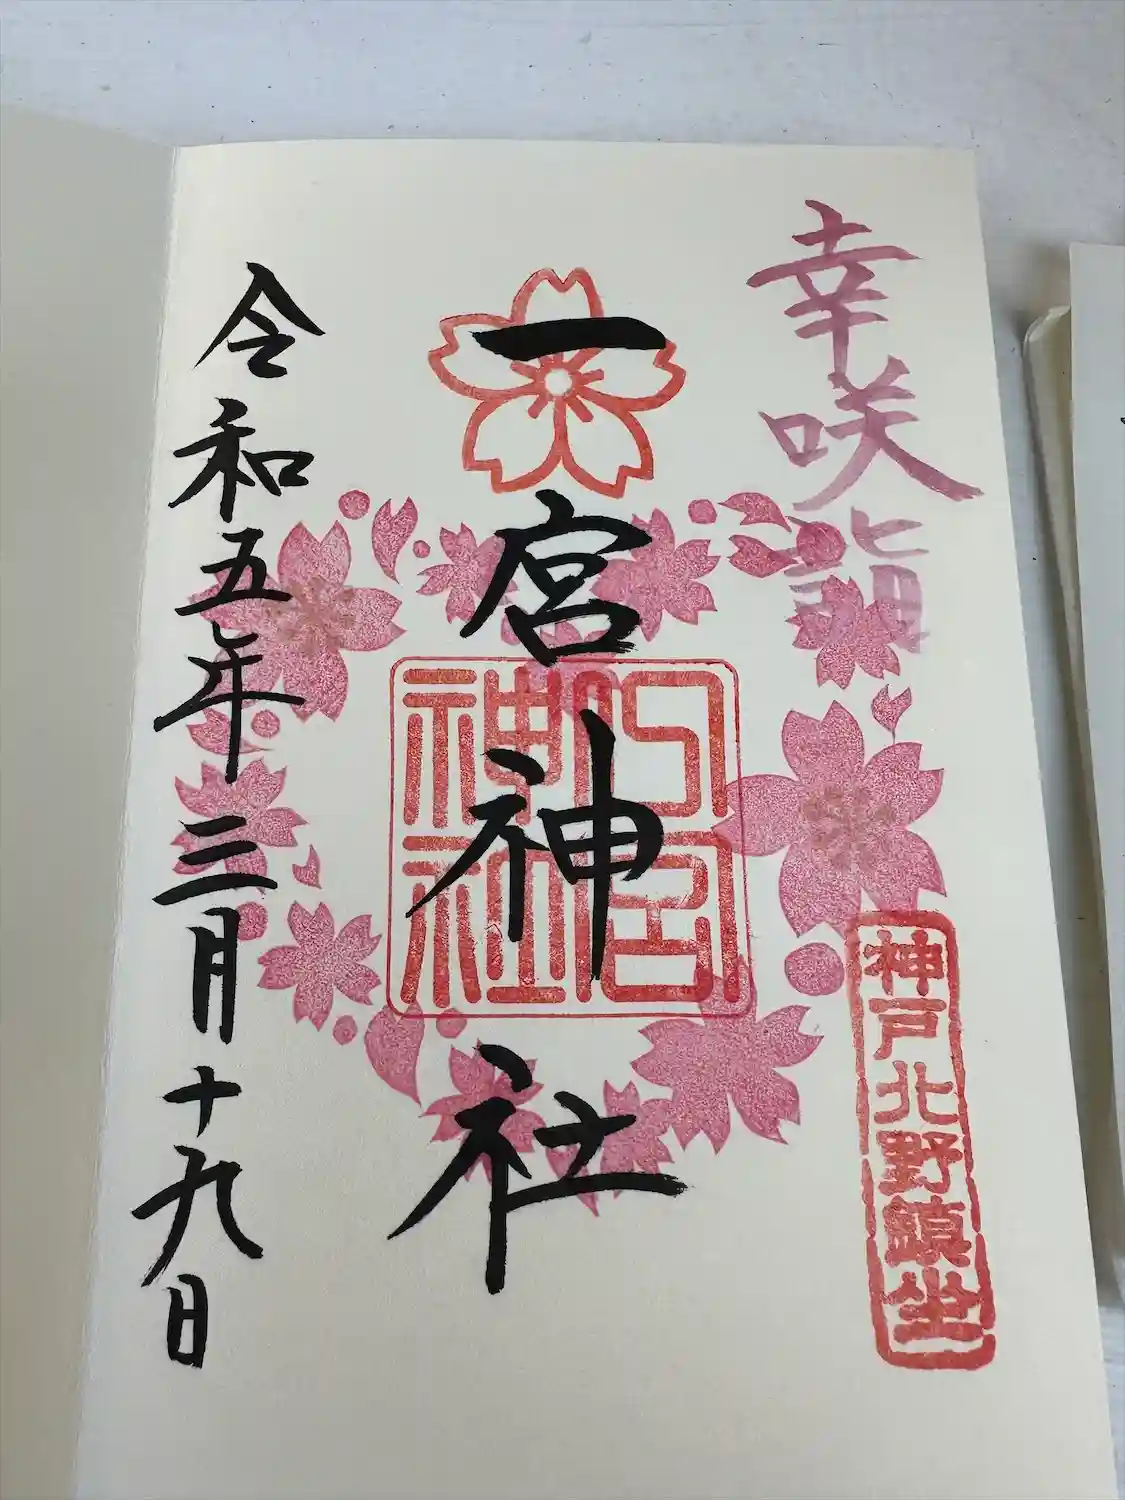 幸咲詣
神戸北野鎮坐
一宮神社
一宮神社
令和五年三月十九日